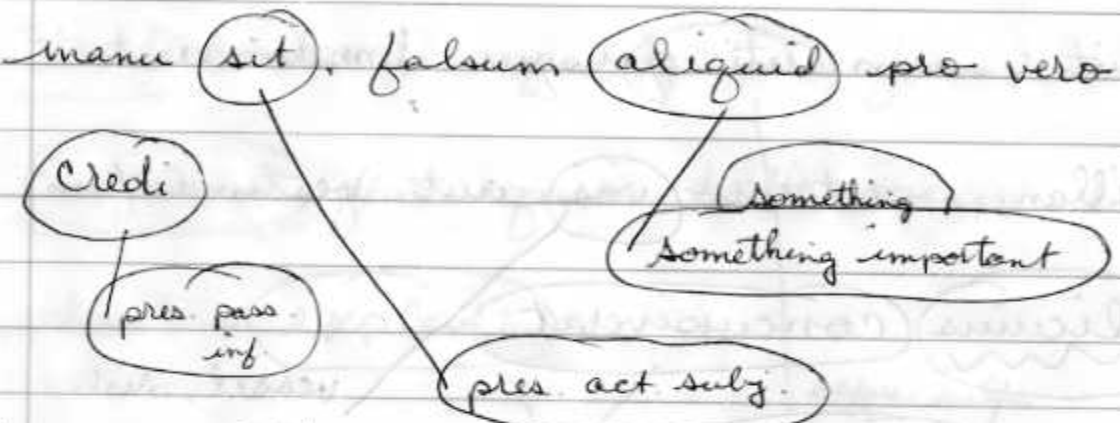 manu sit, falsum aliquid pro vero
credi
something
something important
pres. pass.
inf.
pres. act. subj.